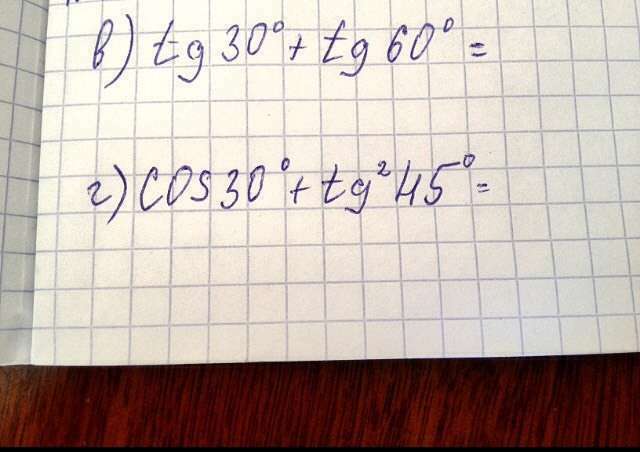 в) tg 30° + tg 60° =
г) cos 30° + tg² 45° =